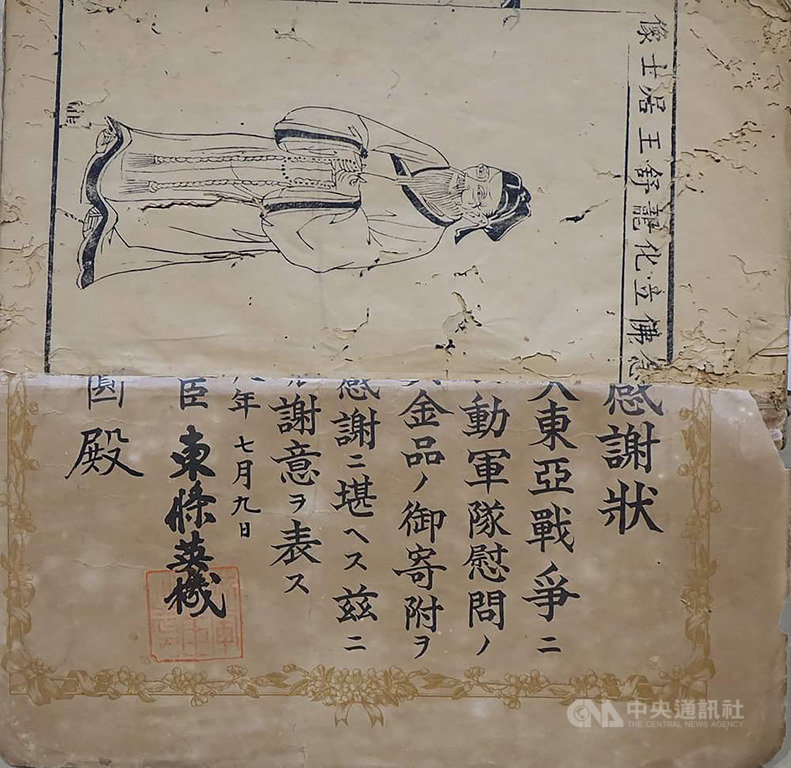 念佛立化龍舒王居士像
感謝狀
大東亞戰爭ニ
動軍隊慰問ノ
金品ノ御寄附ヲ
感謝ニ堪ヘス茲ニ
謝意ヲ表ス
年七月九日
臣 東條英機
圓殿
CNA 中央通訊社
THE CENTRAL NEWS AGENCY